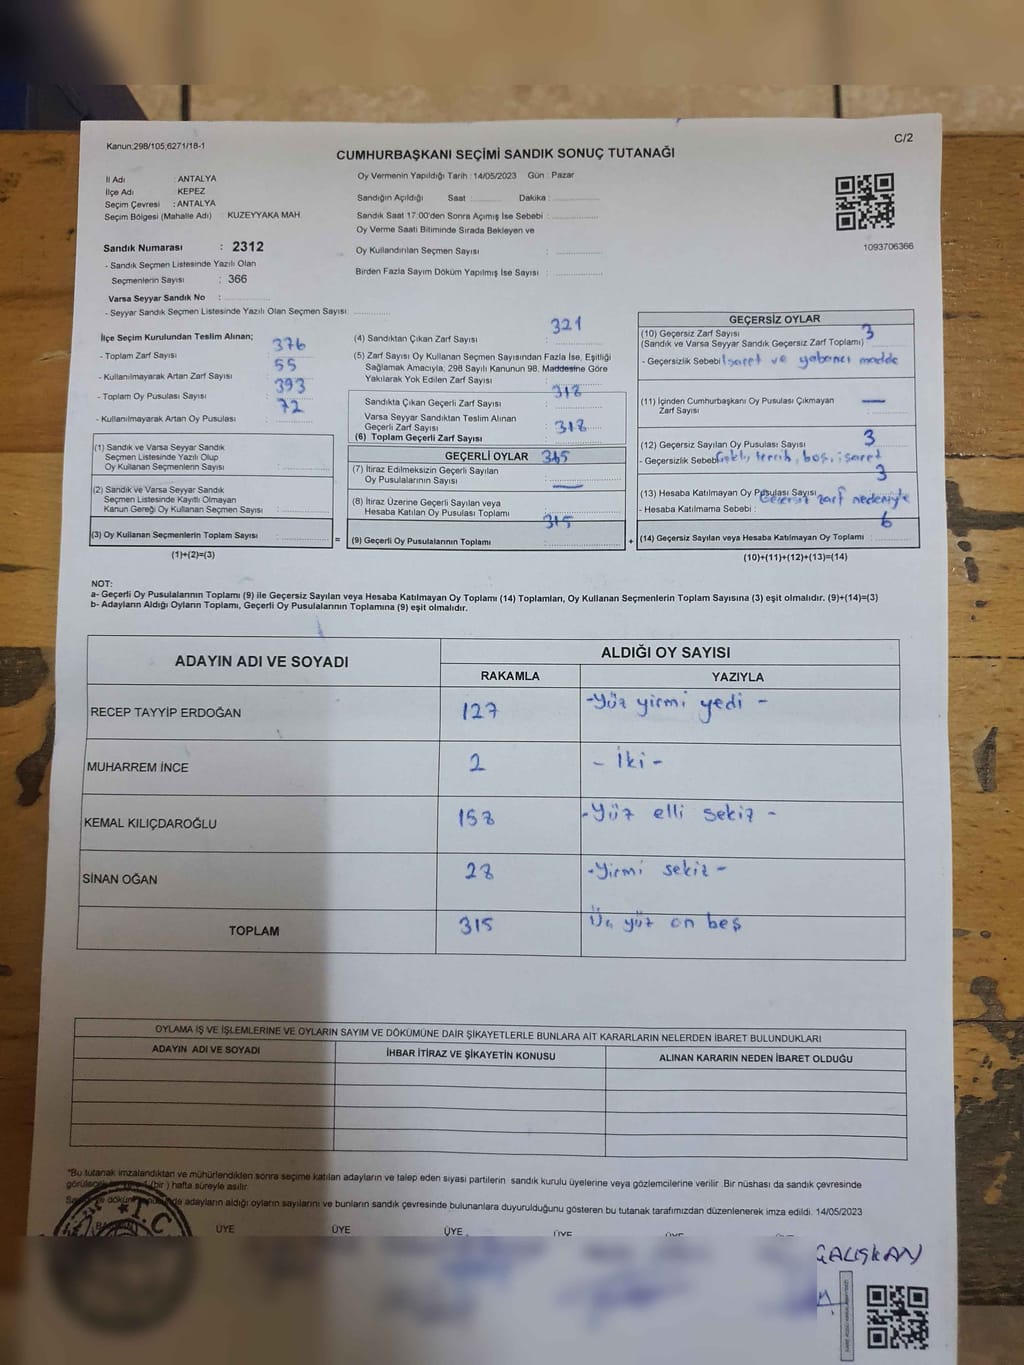 Kanun;298/105;6271/18-1
C/2
CUMHURBAŞKANI SEÇİMİ SANDIK SONUÇ TUTANAĞI
İl Adı : ANTALYA
İlçe Adı : KEPEZ
Seçim Çevresi : ANTALYA
Seçim Bölgesi (Mahalle Adı) : KUZEYYAKA MAH.
Oy Vermenin Yapıldığı Tarih : 14/05/2023 Gün : Pazar
Sandığın Açıldığı Saat : Dakika :
Sandık Saat 17:00'den Sonra Açımış İse Sebebi :
Oy Verme Saati Bitiminde Sırada Bekleyen ve
Oy Kullandırılan Seçmen Sayısı :
Birden Fazla Sayım Döküm Yapılmış İse Sayısı :
1093706366
Sandık Numarası : 2312
- Sandık Seçmen Listesinde Yazılı Olan
Seçmenlerin Sayısı : 366
Varsa Seyyar Sandık No :
- Seyyar Sandık Seçmen Listesinde Yazılı Olan Seçmen Sayısı :
İlçe Seçim Kurulundan Teslim Alınan;
- Toplam Zarf Sayısı : 376
- Kullanılmayarak Artan Zarf Sayısı : 55
- Toplam Oy Pusulası Sayısı : 393
- Kullanılmayarak Artan Oy Pusulası : 72
(1) Sandık ve Varsa Seyyar Sandık
Seçmen Listesinde Yazılı Olup
Oy Kullanan Seçmenlerin Sayısı :
(2) Sandık ve Varsa Seyyar Sandık
Seçmen Listesinde Kayıtlı Olmayan
Kanun Gereği Oy Kullanan Seçmen Sayısı :
(3) Oy Kullanan Seçmenlerin Toplam Sayısı :
(1)+(2)=(3)
(4) Sandıktan Çıkan Zarf Sayısı : 321
(5) Zarf Sayısı Oy Kullanan Seçmen Sayısından Fazla İse, Eşitliği
Sağlamak Amacıyla, 298 Sayılı Kanunun 98. Maddesine Göre
Yakılarak Yok Edilen Zarf Sayısı :
Sandıkta Çıkan Geçerli Zarf Sayısı : 318
Varsa Seyyar Sandıktan Teslim Alınan
Geçerli Zarf Sayısı :
(6) Toplam Geçerli Zarf Sayısı : 318
GEÇERLİ OYLAR
(7) İtiraz Edilmeksizin Geçerli Sayılan
Oy Pusulalarının Sayısı : 315
(8) İtiraz Üzerine Geçerli Sayılan veya
Hesaba Katılan Oy Pusulası Toplamı : —
(9) Geçerli Oy Pusulalarının Toplamı : 315
GEÇERSİZ OYLAR
(10) Geçersiz Zarf Sayısı 3
(Sandık ve Varsa Seyyar Sandık Geçersiz Zarf Toplamı) :
- Geçersizlik Sebebi İşaret ve yabancı madde
(11) İçinden Cumhurbaşkanı Oy Pusulası Çıkmayan —
Zarf Sayısı :
(12) Geçersiz Sayılan Oy Pusulası Sayısı : 3
- Geçersizlik Sebebi tercih, boş, işaret
(13) Hesaba Katılmayan Oy Pusulası Sayısı 3
- Hesaba Katılmama Sebebi : Geçersiz zarf nedeniyle
(14) Geçersiz Sayılan veya Hesaba Katılmayan Oy Toplamı : 6
(10)+(11)+(12)+(13)=(14)
NOT:
a- Geçerli Oy Pusulalarının Toplamı (9) ile Geçersiz Sayılan veya Hesaba Katılmayan Oy Toplamı (14) Toplamları, Oy Kullanan Seçmenlerin Toplam Sayısına (3) eşit olmalıdır. (9)+(14)=(3)
b- Adayların Aldığı Oyların Toplamı, Geçerli Oy Pusulalarının Toplamına (9) eşit olmalıdır.
ADAYIN ADI VE SOYADI ALDIĞI OY SAYISI
RAKAMLA YAZIYLA
RECEP TAYYİP ERDOĞAN 127 -Yüz yirmi yedi -
MUHARREM İNCE 2 - İki -
KEMAL KILIÇDAROĞLU 158 -Yüz elli sekiz -
SİNAN OĞAN 28 -Yirmi sekiz -
TOPLAM 315 Üç yüz on beş
OYLAMA İŞ VE İŞLEMLERİNE VE OYLARIN SAYIM VE DÖKÜMÜNE DAİR ŞİKAYETLERLE BUNLARA AİT KARARLARIN NELERDEN İBARET BULUNDUKLARI
ADAYIN ADI VE SOYADI İHBAR İTİRAZ VE ŞİKAYETİN KONUSU ALINAN KARARIN NEDEN İBARET OLDUĞU
"Bu tutanak imzalandıktan ve mühürlendikten sonra seçime katılan adayların ve talep eden siyasi partilerin sandık kurulu üyelerine veya gözlemcilerine verilir. Bir nüshası da sandık çevresinde
(bir ) hafta süreyle asılır.
adayların aldığı oyların sayılarını ve bunların sandık çevresinde bulunanlara duyurulduğunu gösteren bu tutanak tarafımızdan düzenlenerek imza edildi. 14/05/2023
T.C
ÜYE ÜYE ÜYE ÜYE ÜYE ÜYE
ÇALIŞKAN